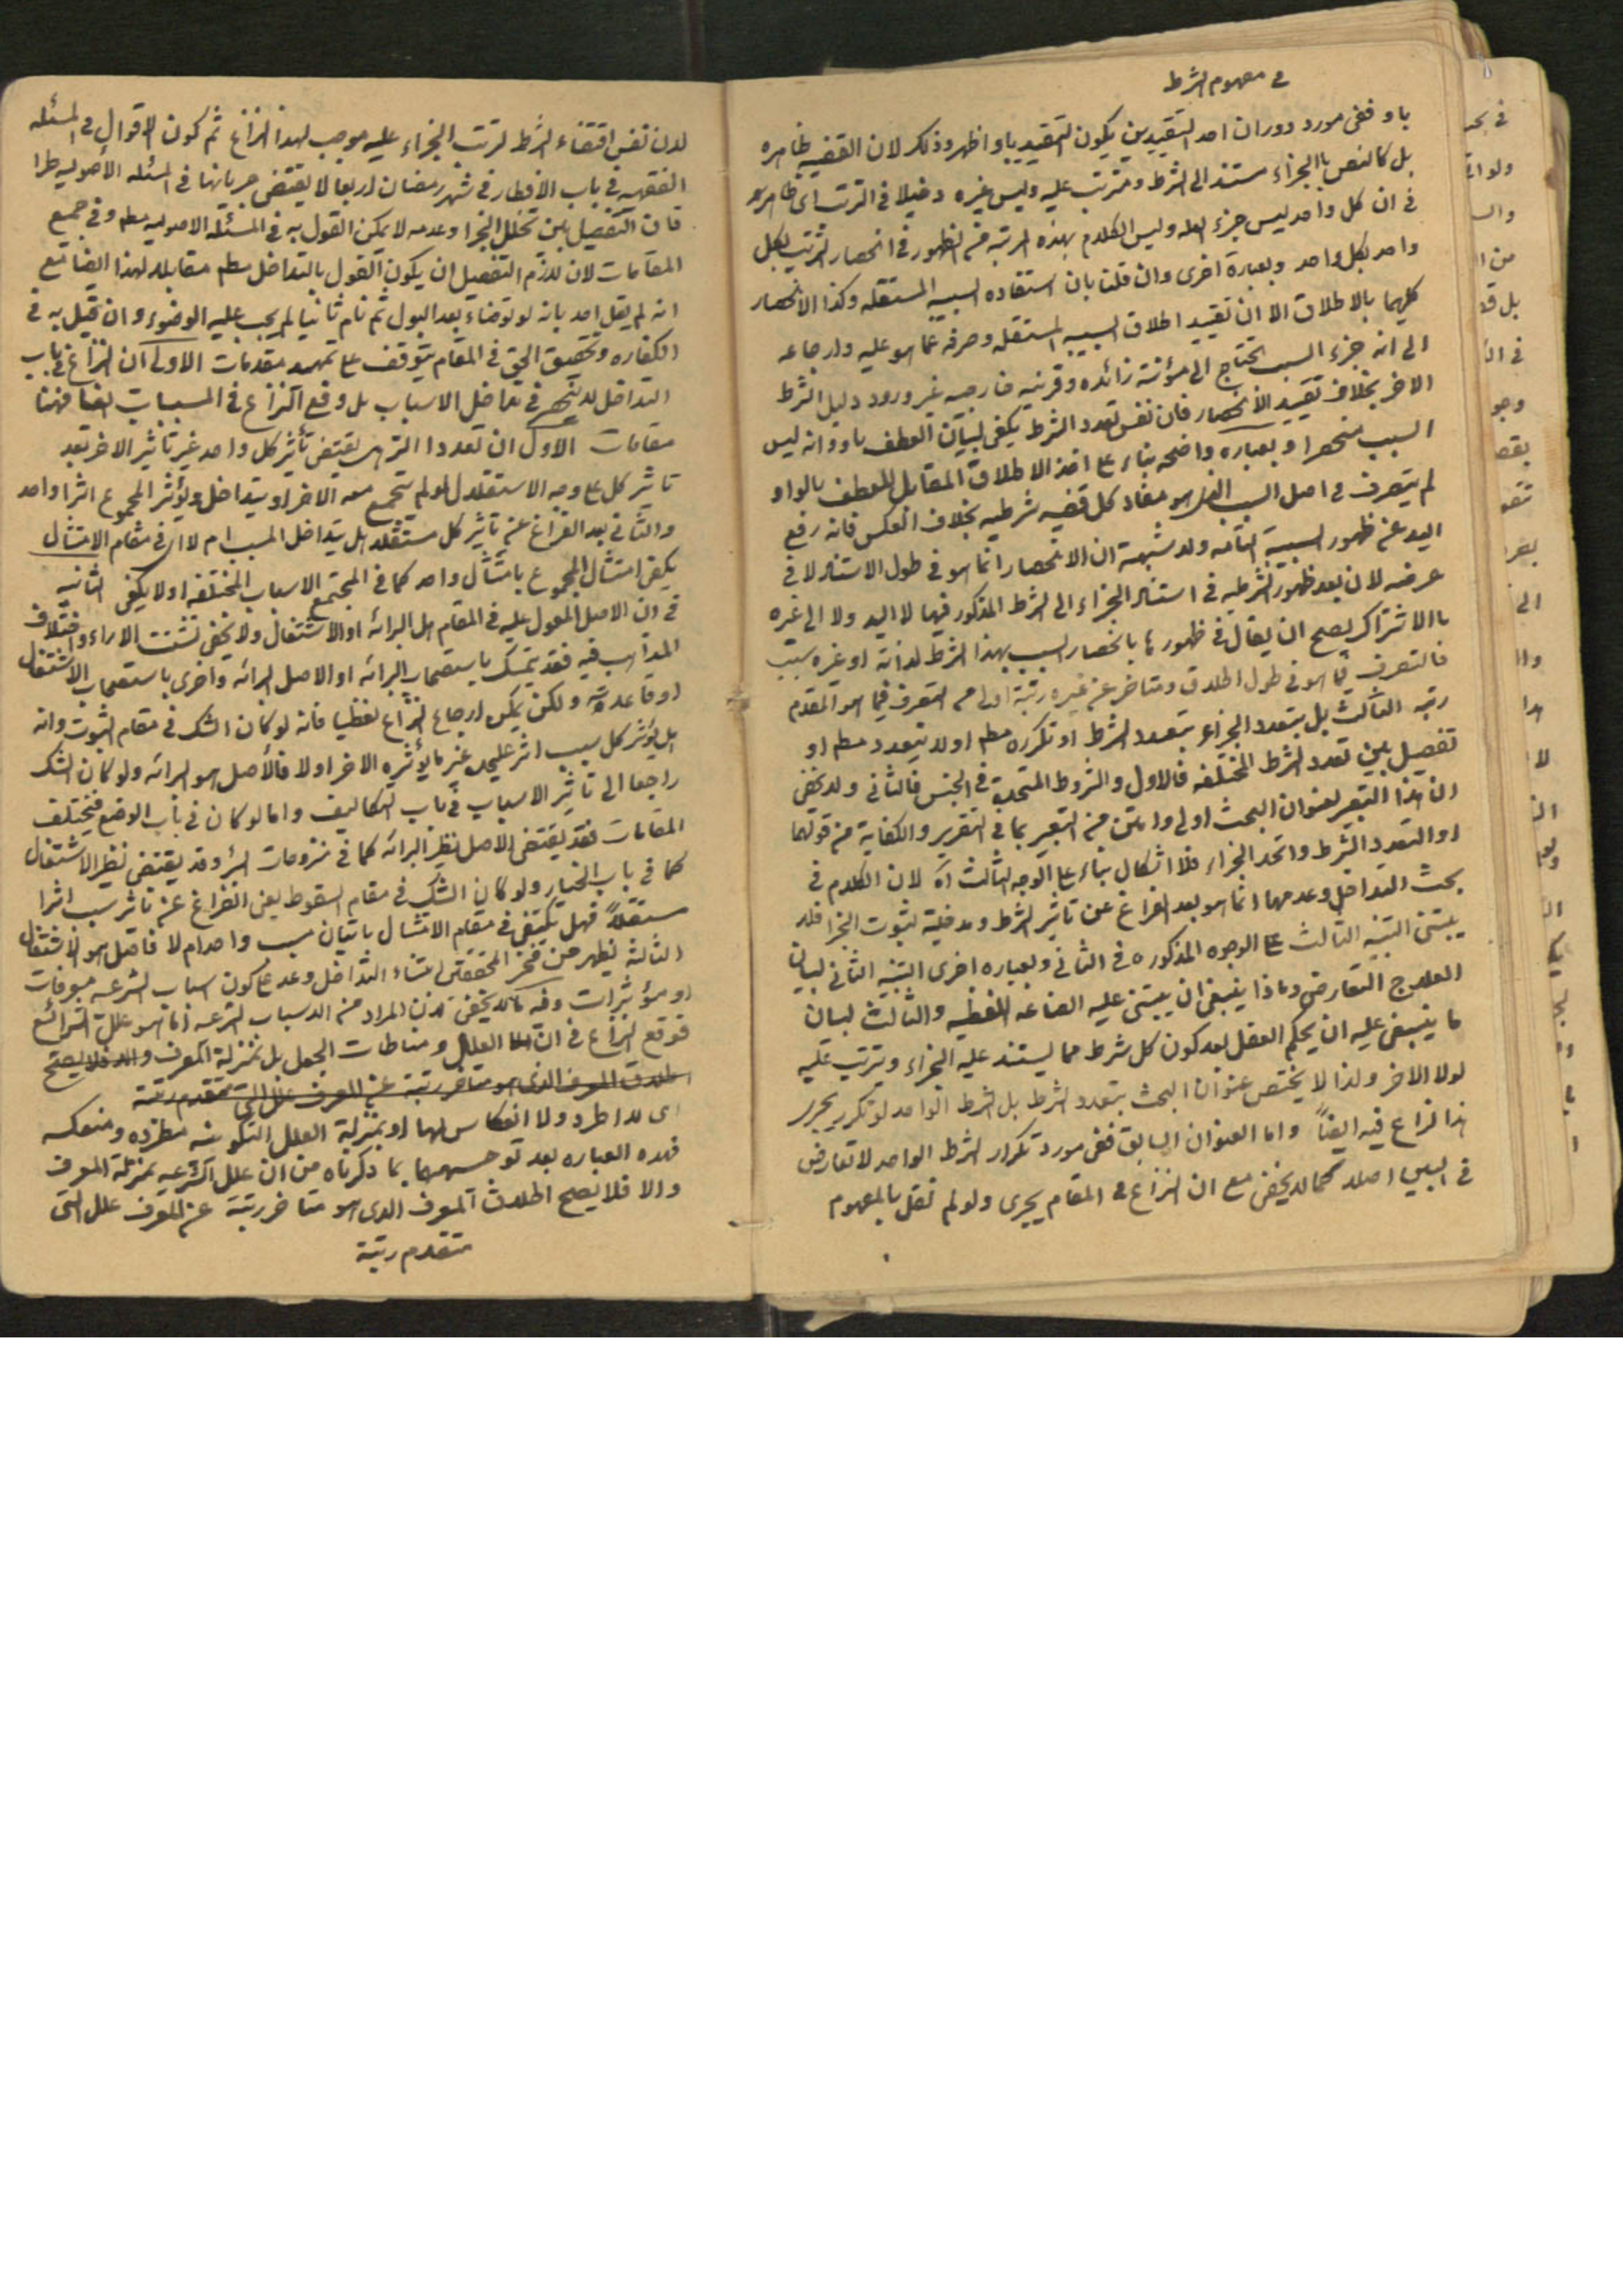 في مفهوم الشرط
باو ففي مورد دوران احد التقييدين يكون التقييد باو اظهر وذلك لان القضيه ظاهره
بل كالنص باالجزاء مستند الى الشرط ومترتب عليه وليس غيره دخيلا في الترتب اى ظاهره
في ان كل واحد ليس جزء العله وليس الكلام بهذه المرتبه من الظهور في انحصار الترتب لكل
واحد بكل واحد وبعبارة اخرى وان قلنا بان استفاده السببيه المستقله وكذا الانحصار
كليهما بالاطلاق الا ان تقييد اطلاق السببيه المستقله وصرفه عما هو عليه وارجاعه
الى انه جزء السبب يحتاج الى مؤنته زائده وقرينه خارجيه غير ورود دليل الشرط
الاخر بخلاف تقييد الانحصار فان نفس تعدد الشرط يكفي لبيان العطف باو وانه ليس
السبب منحصرا وبعباره واضحه بناء على اخذ الاطلاق المقابل للعطف بالواو
لم يتصرف في اصل السبب الذى هو مفاد كل قضيه شرطيه بخلاف العكس فانه رفع
اليد عن ظهور السببية التامه ولا شبهة ان الانحصار انما هو في طول الاستناد لا في
عرضه لان بعد ظهور الشرطيه في استناد الجزاء الى الشرط المذكور فيها لا اليه ولا الى غيره
باالاشتراك يصح ان يقال في ظهورها بانحصار السبب بهذا الشرط لذاته او غيره سبب
فالتصرف فيما هو في طول اطلاق ومتاخر عن غيره رتبة اولى من التصرف فيما هو المقدم
رتبه الثالث بل يتعدد الجزاء بتعدد الشرط او تكرره مطم او لا يتعدد مطم او
تفصيل بين تعدد الشرط المختلفه فالاول والشروط المتحدة في الجنس فالثاني ولا يخفى
ان هذا التعبير لعنوان البحث اولى وامتن من التعبير بما في التقرير والكفاية من قولهما
او التعدد الشرط واتحد الجزاء فلا اشكال بناء على الوجه الثالث اه لان الكلام في
بحث التداخل وعدمهما انما هو بعد الفراغ عن تاثير الشرط ومدخلية لثبوت الجزا فلا
يبتنى التنبيه الثالث على الوجوه المذكوره في الثاني وبعباره اخرى التنبيه الثاني لبيان
العلاج التعارض وماذا ينبغي ان يبتنى عليه الصناعه اللفظيه والثالث لبيان
ما ينبغي عليه ان يحكم العقل بعد كون كل شرط مما يستند عليه الجزاء وترتب عليه
لولا الاخر ولذا لا يختص عنوان البحث بتعدد الشرط بل الشرط الواحد لو تكرر يجرى
هذا نزاع فيه ايضاً واما العنوان السابق ففي مورد تكرار الشرط الواحد لا تعارض
في البين اصلا كما لا يخفى مع ان النزاع في المقام يجرى ولو لم نقل بالمفهوم
لان نفس اقتضاء الشرط لترتب الجزاء عليه موجب لهذا النزاع ثم كون الاقوال في المسئله
الفقهيه في باب الافطار في شهر رمضان اربعا لا يقتضى جريانها في المسئله الاصوليه طرا
فان التفصيل بين تخلل الجزا وعدمه لا يمكن القول به في المسئله الاصوليه مطم وفي جميع
المقامات لان لازم التفصيل ان يكون القول بالتداخل مطم مقابله لهذا ايضا مع
انه لم يقل احد بانه لو توضاء بعد البول ثم نام ثانيا لم يجب عليه الوضوء وان قيل به في
الكفاره وتحقيق الحق في المقام يتوقف على تمهيد مقدمات الاولى ان النزاع في باب
التداخل لا ينحصر في تداخل الاسباب بل وقع النزاع في المسببات ايضا فهنا
مقامات الاول ان تعدد الشرط هل يقتضى تأثير كل واحد غير تاثير الاخر بعد
تاثير كل على وجه الاستقلال لو لم يجتمع معه الاخر او يتداخل ويؤثر المجموع اثرا واحد
والثاني بعد الفراغ عن تاثير كل مستقلا هل يتداخل المسبب ام لا اى في مقام الامتثال
يكفي امتثال المجموع بامتثال واحد كما في المجتمع الاسباب المختلفه او لا يكفى الثانيه
في ان الاصل المعول عليه في المقام هل البرائه او الاشتغال ولا يخفى تشتت الاراء واختلاف
المذاهب فيه فقد يتمسك باستصحاب البرائه او الاصل البرائه واخرى باستصحاب الاشتغال
او قاعدته ولكن يمكن ارجاع النزاع لفظيا فانه لو كان الشك في مقام الثبوت وانه
هل يؤثر كل سبب اثر عليحده غير ما يؤثره الاخر او لا فالأصل هو البرائه ولو كان الشك
راجعا الى تاثير الاسباب في باب التكاليف واما لو كان في باب الوضع فيختلف
المقامات فقد يقتضى الاصل نظير البرائه كما في منزوحات البئر وقد يقتضى نظير الاشتغال
كما في باب الخيار ولو كان الشك في مقام السقوط يعنى الفراغ عن تاثير سبب اثرا
مستقلاً فهل يكتفى في مقام الامتثال باتيان مسبب واحد ام لا فاصل هو الاشتغال
الثالثة يظهر من فخر المحققين ابتناء التداخل وعدمه على كون اسباب الشرعيه معرفات
او مؤثرات وفيه ما لا يخفى لان المراد من الاسباب الشرعيه انما هو علل الشرائع
فوقع النزاع في ان العلل ومناطات الجعل بل بمنزلة المعرف والا فلا يصح
اطلاق المعرف الذى هو متاخر رتبة عن المعرف علل التى متقدم رتبة
اى لا اطراد ولا انعكاس لها او بمنزلة العلل التكوينيه مطرده ومنعكسه
فهذه العباره بعد توجيهها بما ذكرناه من ان علل الشرعيه بمنزلة المعرف
والا فلا يصح اطلاق المعرف الذى هو متاخر رتبة عن المعرف علل التى
متقدم رتبة